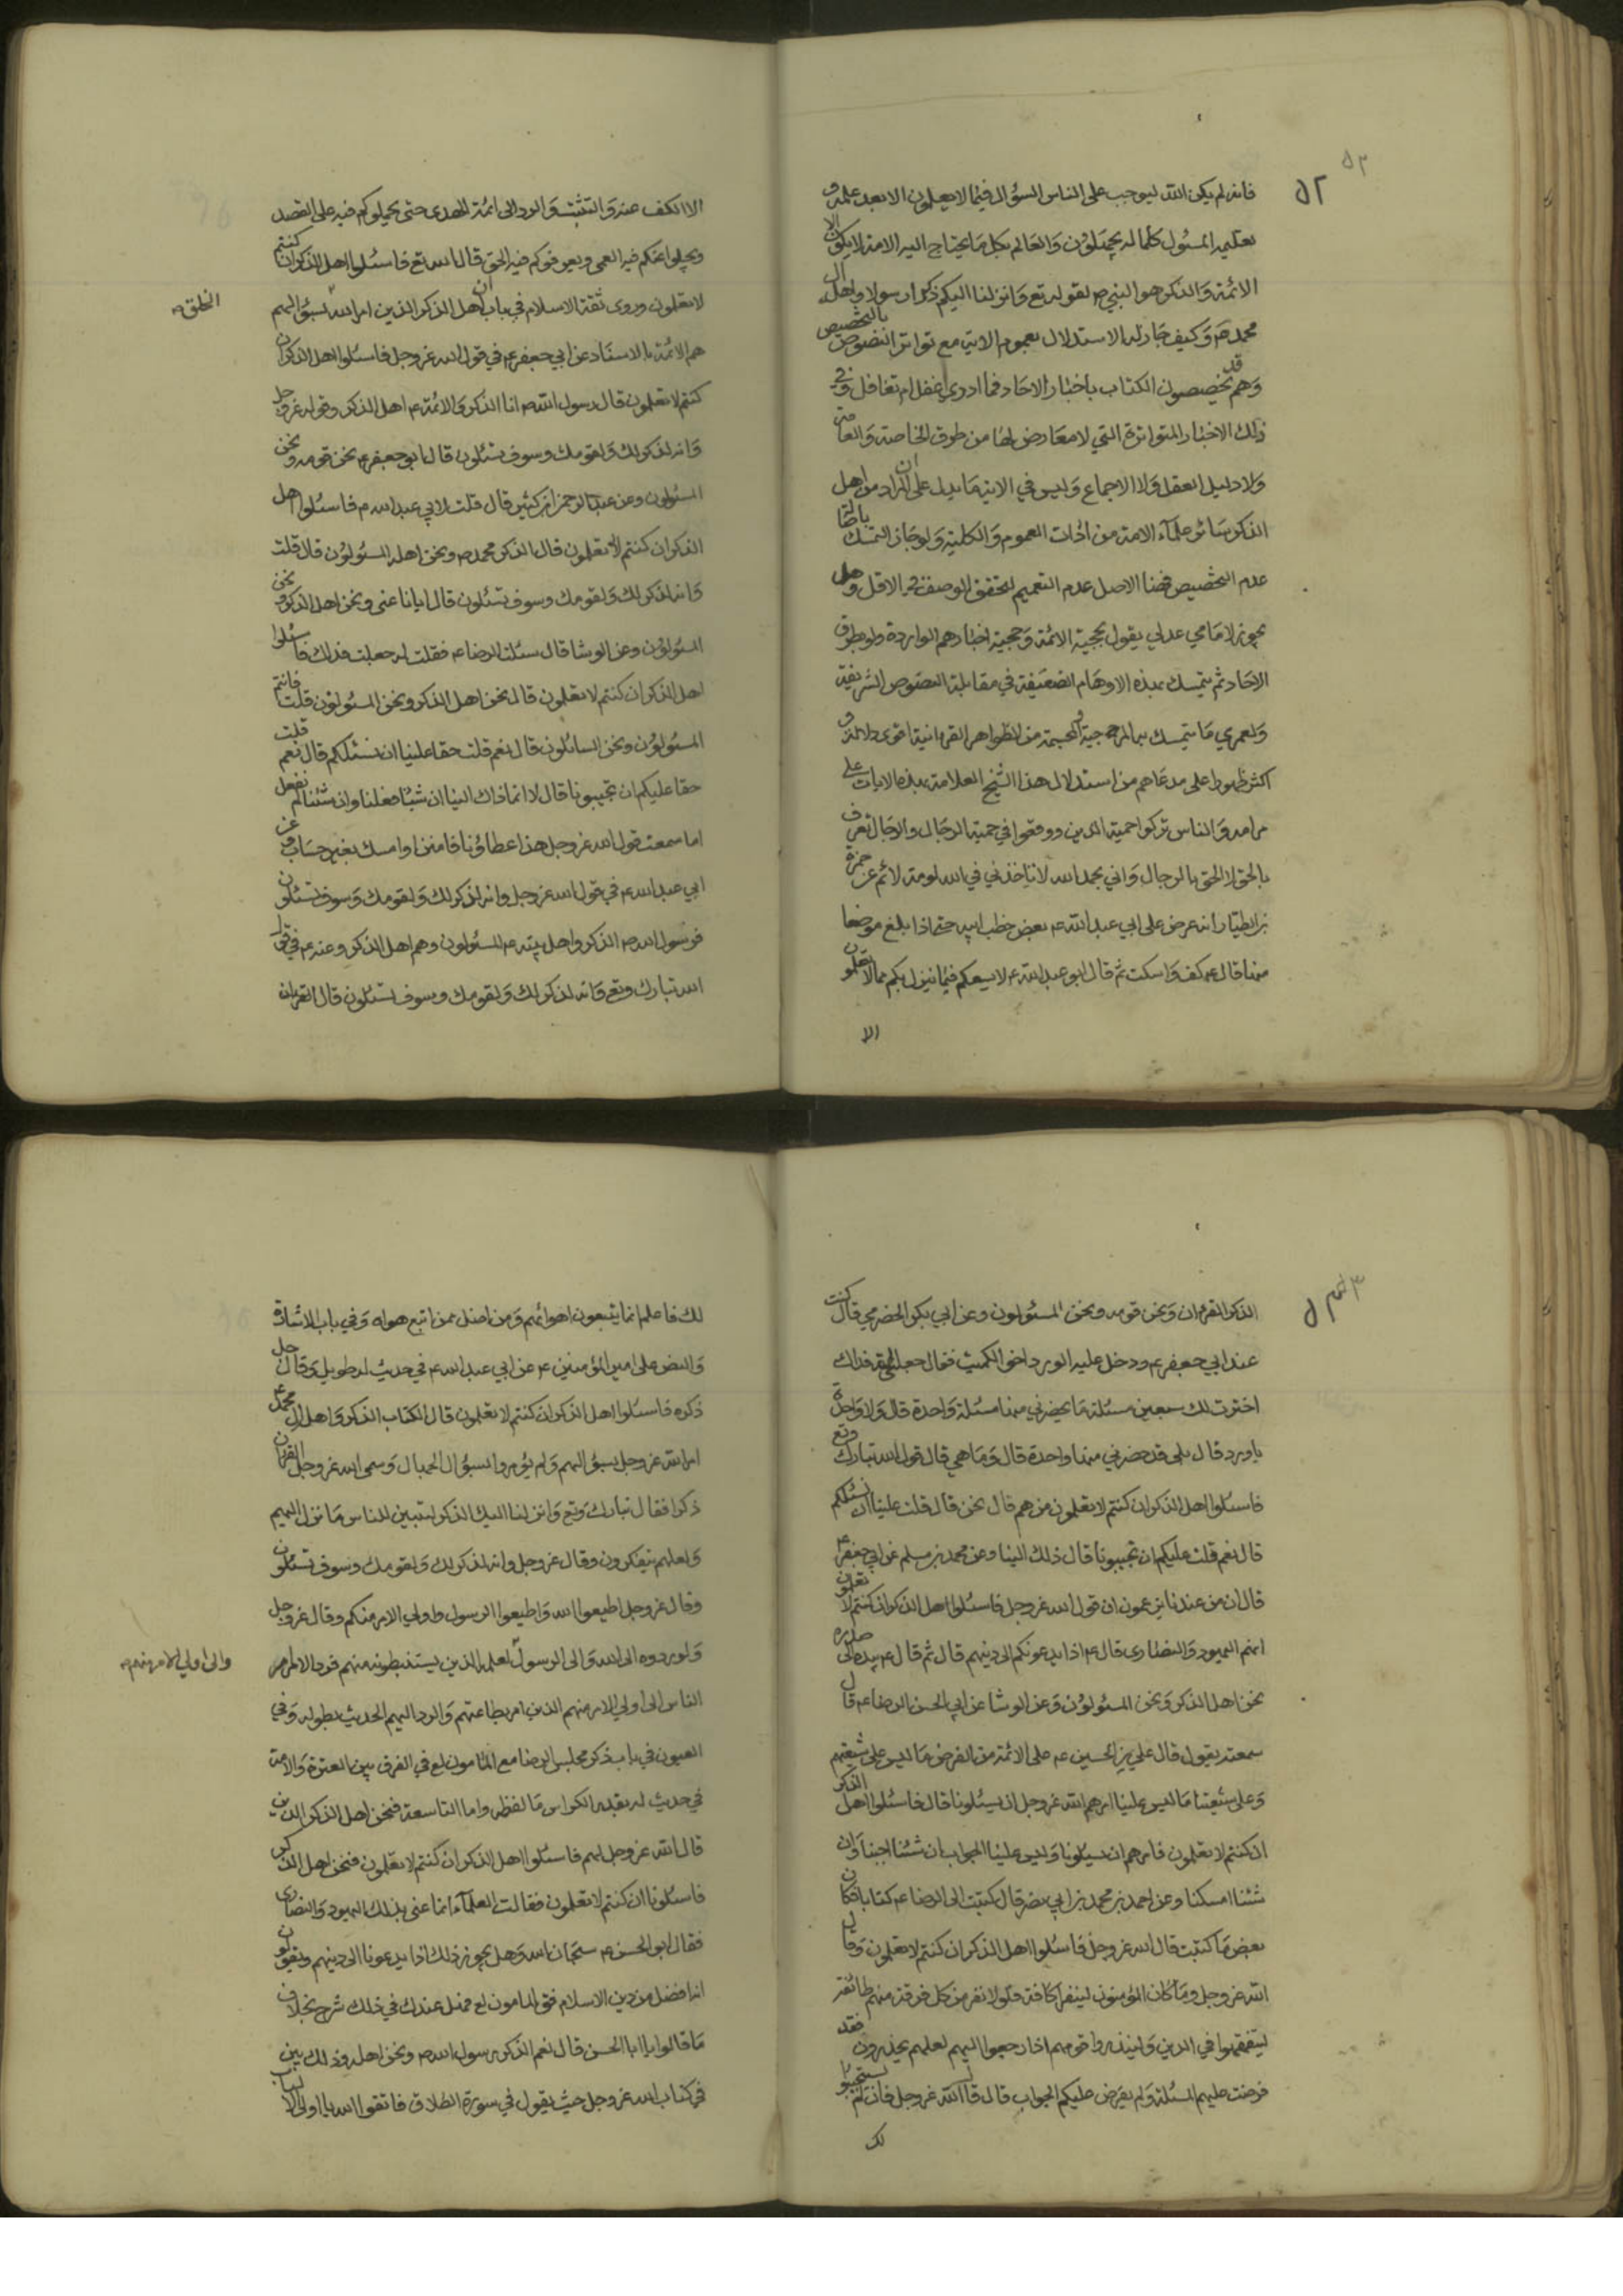 ٥٢
٥٢
فانه لم يكن الله ليوجب على الناس السؤال فيما لا يعلمون الا بعد علمه و
تعليم المسئول كلما له يحتملون والعالم بكل ما يحتاج اليه الامة لا يكون الا
الائمة والذكر هو النبي ص لقوله تع وانزلنا اليكم ذكرا رسولا واهله ال
محمد ص وكيف جاز له الاستدلال بعموم الاية مع تواتر النصوص بالتخصيص
وهم قد يخصصون الكتاب باخبار الاحاد فما ادري اغفل ام تغافل وفي
ذلك الاخبار المتواترة التي لا معارض لها من طرق الخاصة والعامة
ولا دليل العقل ولا الاجماع وليس في الاية ما يدل على ان المراد من اهل
الذكر سائر علماء الامة من ادات العموم والكلية ولو جاز التمسك باصالة
عدم التخصيص فهنا الاصل عدم التعميم لتحقق الوصف في الاقل وهل
يجوز لامامي عدلي يقول بحجية الائمة وحجية اخبارهم الواردة ولو بطرق
الاحاد ثم يتمسك بهذه الاوهام الضعيفة في مقابلة النصوص الشريفة
ولعمري ما يتمسك به المرجئة والمجسمة من الظواهر القرانية اقوى دلالة و
اكثر ظهورا على مدعاهم من استدلال هذا الشيخ العلامة بهذه الايات على
مرامه والناس تركوا حمية الدين ووقعوا في حمية الرجال والرجال تعرف
بالحق لا الحق بالرجال واني بحمد الله لا تاخذني في الله لومة لائم عن حمزة
بن الطيار انه عرض على ابي عبد الله ع بعض خطب ابيه حتى اذا بلغ موضعا
منها قال ع كف واسكت ثم قال ابو عبد الله ع لا يسعكم فيما ينزل بكم مما لا تعلمون
الا
الا الكف عنه والتثبت والرد الى ائمة الهدى حتى يحملوكم فيه على القصد
ويجلوا عنكم فيه العمى ويعرفوكم فيه الحق قال الله تع فاسئلوا اهل الذكر ان كنتم
لا تعلمون وروى ثقة الاسلام في باب ان اهل الذكر الذين امر الله بسؤالهم
الخلق ص
هم الائمة بالاسناد عن ابي جعفر ع في قول الله عز وجل فاسئلوا اهل الذكر ان
كنتم لا تعلمون قال رسول الله ص انا الذكر والائمة ع اهل الذكر وقوله عز وجل
وانه لذكر لك ولقومك وسوف تسئلون قال ابو جعفر ع نحن قومه ونحن
المسئولون وعن عبد الرحمن بن كثير قال قلت لابي عبد الله ع فاسئلوا اهل
الذكر ان كنتم لا تعلمون قال الذكر محمد ص ونحن اهله المسئولون قال قلت
وانه لذكر لك ولقومك وسوف تسئلون قال ايانا عنى ونحن اهل الذكر ونحن
المسئولون وعن الوشا قال سئلت الرضا ع فقلت له جعلت فداك فاسئلوا
اهل الذكر ان كنتم لا تعلمون قال نحن اهل الذكر ونحن المسئولون قلت فانتم
المسئولون ونحن السائلون قال نعم قلت حقا علينا ان نسئلكم قال نعم قلت
حقا عليكم ان تجيبونا قال لا انما ذاك الينا ان شئنا فعلنا وان شئنا لم نفعل
اما سمعت قول الله عز وجل هذا عطاؤنا فامنن او امسك بغير حساب وعن
ابي عبد الله ع في قول الله عز وجل وانه لذكر لك ولقومك وسوف تسئلون
فرسول الله ص الذكر واهل بيته ع المسئولون وهم اهل الذكر وعنه ع في قول
الله تبارك وتع وانه لذكر لك ولقومك وسوف تسئلون قال القران
الذكر القران ونحن قومه ونحن المسئولون وعن ابي بكر الحضرمي قال كنت
عند ابي جعفر ع ودخل عليه الورد اخو الكميت فقال جعلني الله فداك
اخترت لك سبعين مسئلة ما يحضرني منها مسئلة واحدة قال ولا واحدة
يا ورد قال بلى قد حضرني منها واحدة قال وما هي قال قول الله تبارك وتع
فاسئلوا اهل الذكر ان كنتم لا تعلمون من هم قال نحن قال قلت علينا ان نسئلكم
قال نعم قلت عليكم ان تجيبونا قال ذلك الينا وعن محمد بن مسلم عن ابي جعفر ع
قال ان من عندنا يزعمون ان قول الله عز وجل فاسئلوا اهل الذكر ان كنتم لا تعلمون
انهم اليهود والنصارى قال ع اذا يدعونكم الى دينهم قال ثم قال ع بيده الى صدره
نحن اهل الذكر ونحن المسئولون وعن الوشا عن ابي الحسن الرضا ع قال
سمعته يقول قال علي بن الحسين ع على الائمة من الفرض ما ليس على شيعتهم
وعلى شيعتنا ما ليس علينا امرهم الله عز وجل ان يسئلونا قال فاسئلوا اهل الذكر
ان كنتم لا تعلمون فامرهم ان يسئلونا وليس علينا الجواب ان شئنا اجبنا وان
شئنا امسكنا وعن احمد بن محمد بن ابي نصر قال كتبت الى الرضا ع كتابا فكان
بعض ما كتبت قال الله عز وجل فاسئلوا اهل الذكر ان كنتم لا تعلمون وقال
الله عز وجل وما كان المؤمنون لينفروا كافة فلولا نفر من كل فرقة منهم طائفة
ليتفقهوا في الدين ولينذروا قومهم اذا رجعوا اليهم لعلهم يحذرون فقد
فرضت عليهم المسئلة ولم يفرض عليكم الجواب قال قال الله عز وجل فان لم يستجيبوا
لك
لك فاعلم انما يتبعون اهوائهم ومن اضل ممن اتبع هواه وفي باب الاشارة
والنص على امير المؤمنين ع عن ابي عبد الله ع في حديث له طويل وقال جل
ذكره فاسئلوا اهل الذكر ان كنتم لا تعلمون قال الكتاب الذكر واهله ال محمد ع
امر الله عز وجل بسؤالهم ولم يؤمروا بسؤال الجهال وسمى الله عز وجل القران
ذكرا فقال تبارك وتع وانزلنا اليك الذكر لتبين للناس ما نزل اليهم
ولعلهم يتفكرون وقال عز وجل وانه لذكر لك ولقومك وسوف تسئلون
وقال عز وجل اطيعوا الله واطيعوا الرسول واولي الامر منكم وقال عز وجل
ولو ردوه الى الله والى الرسول لعلمه الذين يستنبطونه منهم فرد الامر امر
والى اولي الامر منهم ص
الناس الى اولي الامر منهم الذين امر بطاعتهم والرد اليهم الحديث بطوله وفي
العيون في باب ذكر مجلس الرضا مع المامون لع في الفرق بين العترة والامة
في حديث له بقدر الكراس ما لفظه واما التاسعة فنحن اهل الذكر الذين
قال الله عز وجل لهم فاسئلوا اهل الذكر ان كنتم لا تعلمون فنحن اهل الذكر
فاسئلونا ان كنتم لا تعلمون فقالت العلماء انما عنى بذلك اليهود والنصارى
فقال ابو الحسن ع سبحان الله وهل يجوز ذلك اذا يدعونا الى دينهم ويقولون
انه افضل من دين الاسلام فق المامون لع فهل عندك في ذلك شرح بخلاف
ما قالوا يا ابا الحسن قال نعم الذكر رسول الله ص ونحن اهله وذلك بين
في كتاب الله عز وجل حيث يقول في سورة الطلاق فاتقوا الله يا اولي الالباب